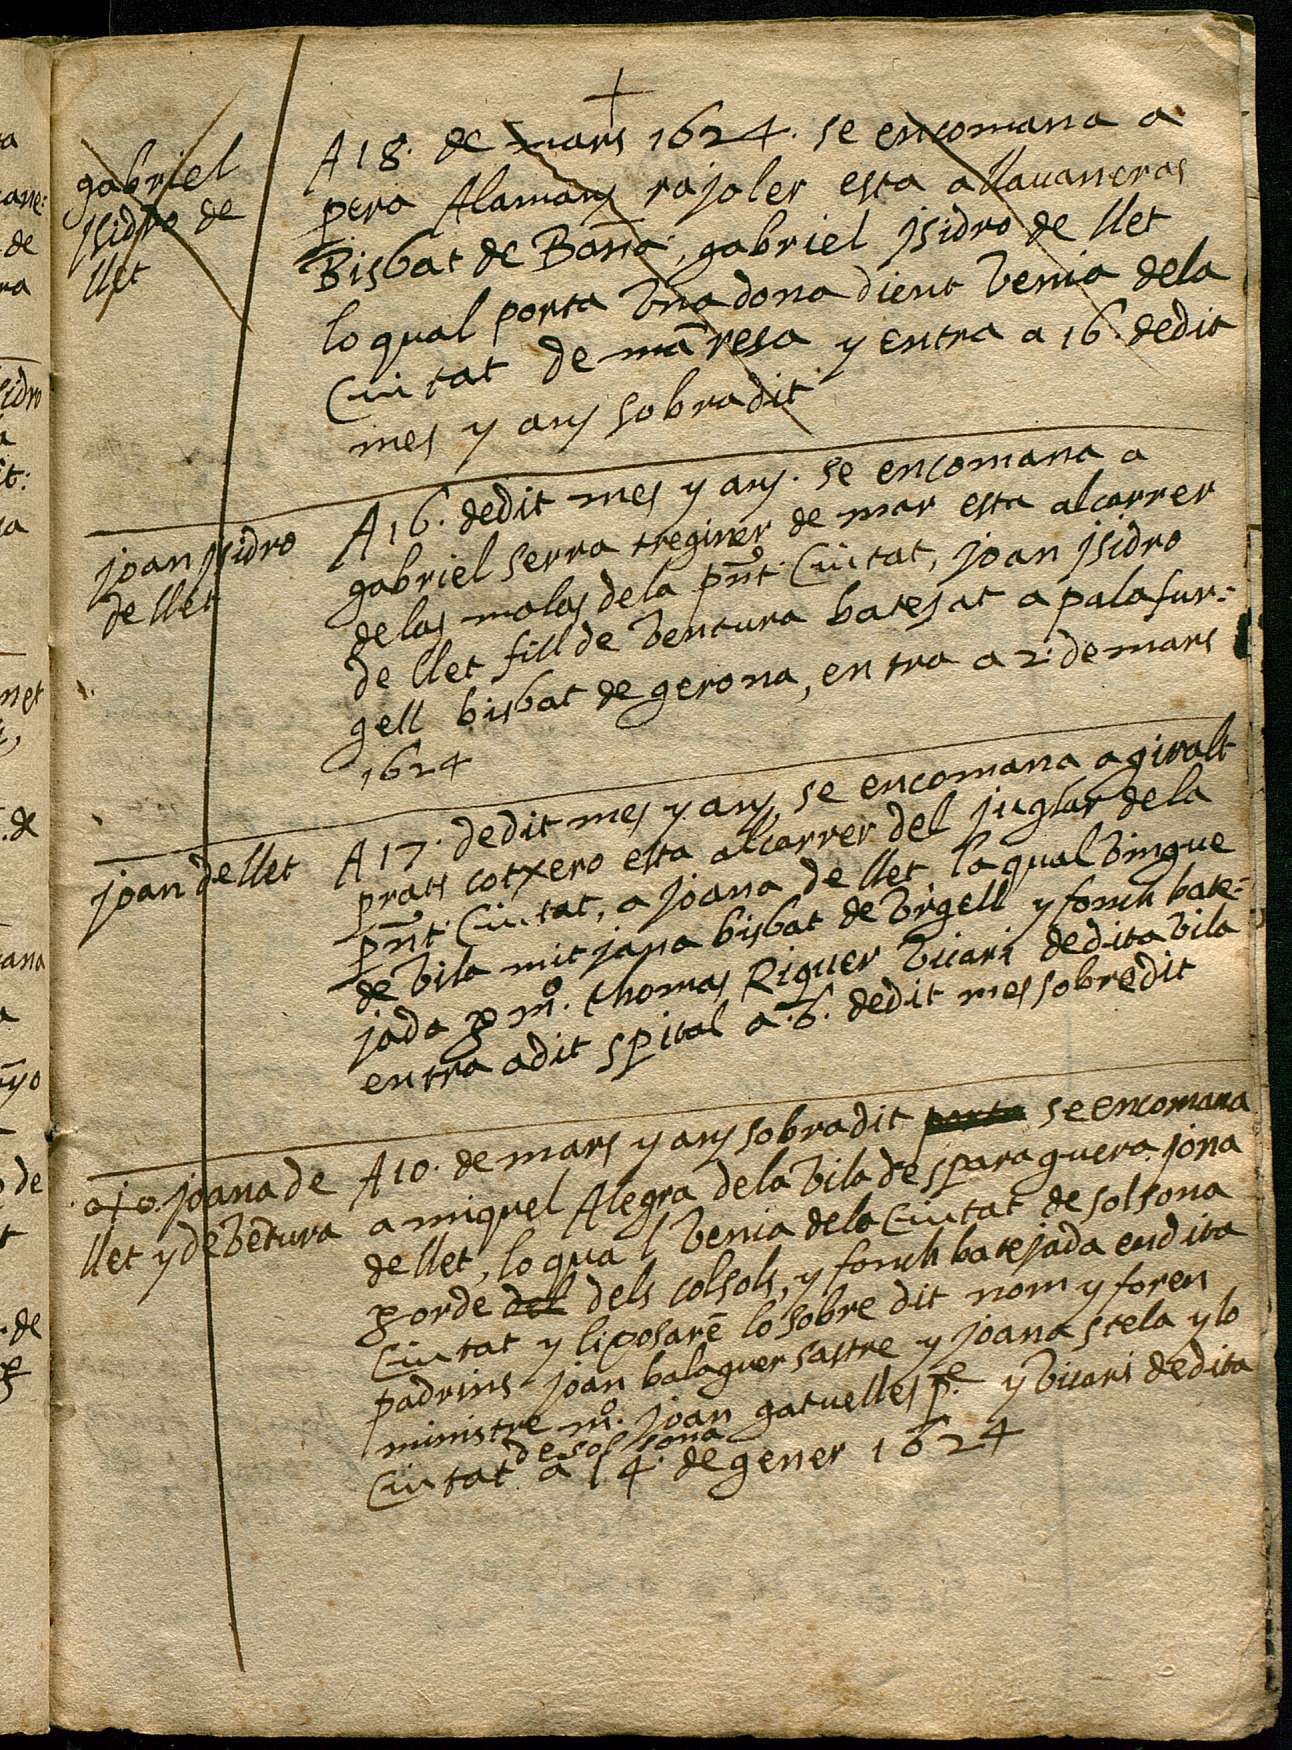 gabriel
jsidro de
llet
A 18. de mars 1624. se encomana a
pera Alamany rajoler esta a llavaneras
Bisbat de Barna, gabriel jsidro de llet
lo qual porta vna dona dient venia dela
Ciutat de māresa y entra a 16. dedit
mes y any sobradit
joan jsidro
de llet
A 16. dedit mes y any. se encomana a
gabriel serra treginer de mar esta al carrer
delas molas dela pñt. Ciutat, joan jsidro
de llet fill de ventura batejat a palafur-
gell bisbat de gerona, entra a 2. de mars
1624
joan de llet
A 17. dedit mes y any, se encomana a giralt
prats cotxero esta al carrer del juglar dela
pñt. Ciutat, a joana de llet la qual vingue
de vila mitjana bisbat de vrgell y fonch bate-
jada p mº. thomas Riquer vicari dedita vila
entra adit spital a .6. dedit mes sobredit
ojo. joana de
llet y de vētura
A 10. de mars y any sobradit porta se encomana
a miquel Alegra dela vila desparaguera jona
de llet, lo qual venia dela Ciutat de solsona
p orde del dels colsols, y fonch batejada en dita
Ciutat y liposarē lo sobre dit nom y foren
padrins joan balaguer sastre y joana stela y lo
ministre mº. joan gatuelles pe. y vicari dedita
de solsona
Ciutat a 14. de gener 1624